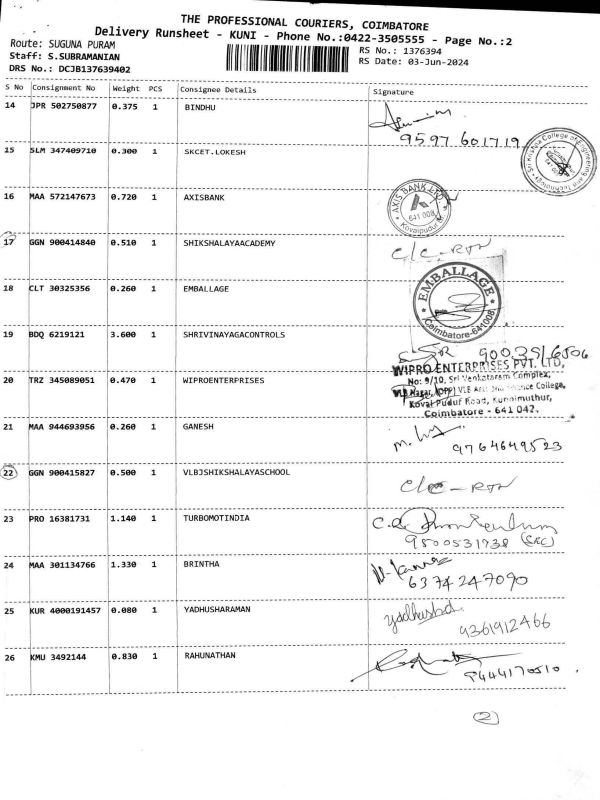 THE PROFESSIONAL COURIERS, COIMBATORE
Delivery Runsheet - KUNI - Phone No.:0422-3505555 - Page No.:2
Route: SUGUNA PURAM
RS No.: 1376394
Staff: S.SUBRAMANIAN
RS Date: 03-Jun-2024
DRS No.: DCJB137639402
S No Consignment No Weight PCS Consignee Details Signature
14 JPR 502750877 0.375 1 BINDHU
9597601719
Sri Krishna College of Engineering and Technology
15 SLM 347409710 0.300 1 SKCET.LOKESH
16 MAA 572147673 0.720 1 AXISBANK
AXIS BANK LTD.
641 008
Kovaipudur
17 GGN 900414840 0.510 1 SHIKSHALAYAACADEMY C/C-RTN
18 CLT 30325356 0.260 1 EMBALLAGE
EMBALLAGE
Coimbatore-641008
19 BDQ 6219121 3.600 1 SHRIVINAYAGACONTROLS
WIPRO ENTERPRISES PVT. LTD,
No: 9/10, Sri Venkataram Complex,
20 TRZ 345089051 0.470 1 WIPROENTERPRISES
College,
Road, Kuniamuthur,
Coimbatore - 641 042.
21 MAA 944693956 0.260 1 GANESH
9764649523
22 GGN 900415827 0.500 1 VLBJSHIKSHALAYASCHOOL C/C-RTN
23 PRO 16381731 1.140 1 TURBOMOTINDIA
9500531738
24 MAA 301134766 1.330 1 BRINTHA
6374247090
25 KUR 4000191457 0.080 1 YADHUSHARAMAN
9361912466
26 KMU 3492144 0.830 1 RAHUNATHAN
9444170510
2